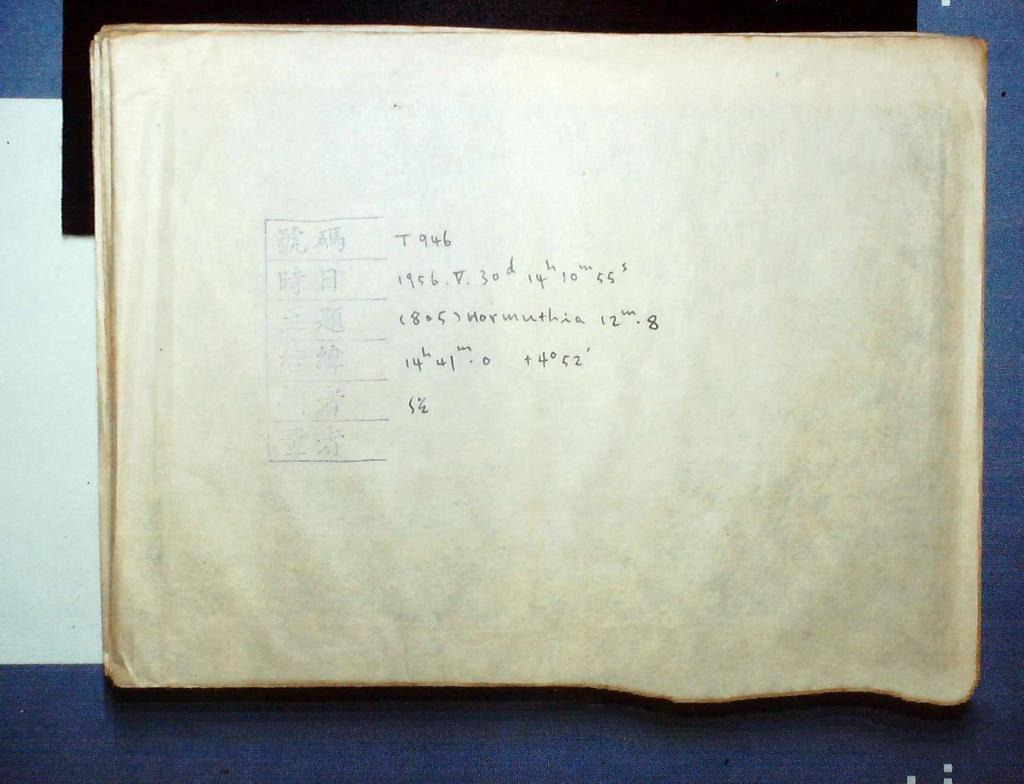 號碼 T 946
時日 1956. V. 30ᵈ 14ʰ 10ᵐ 55ˢ
主題 (805) Hormuthia 12ᵐ.8
經緯 14ʰ 41ᵐ.0 +4° 52′
者
者